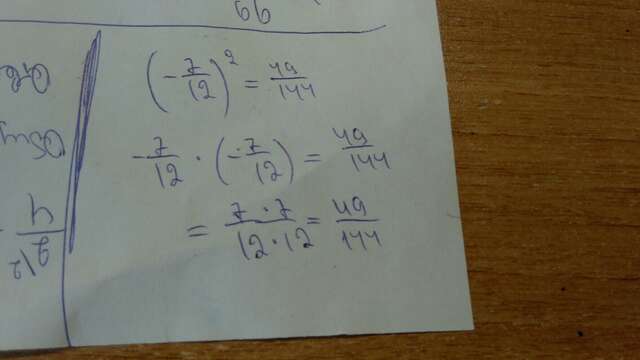 66
(-7/12)^2 = 49/144
-7/12 · (-7/12) = 49/144
= 7 · 7/12 · 12 = 49/144